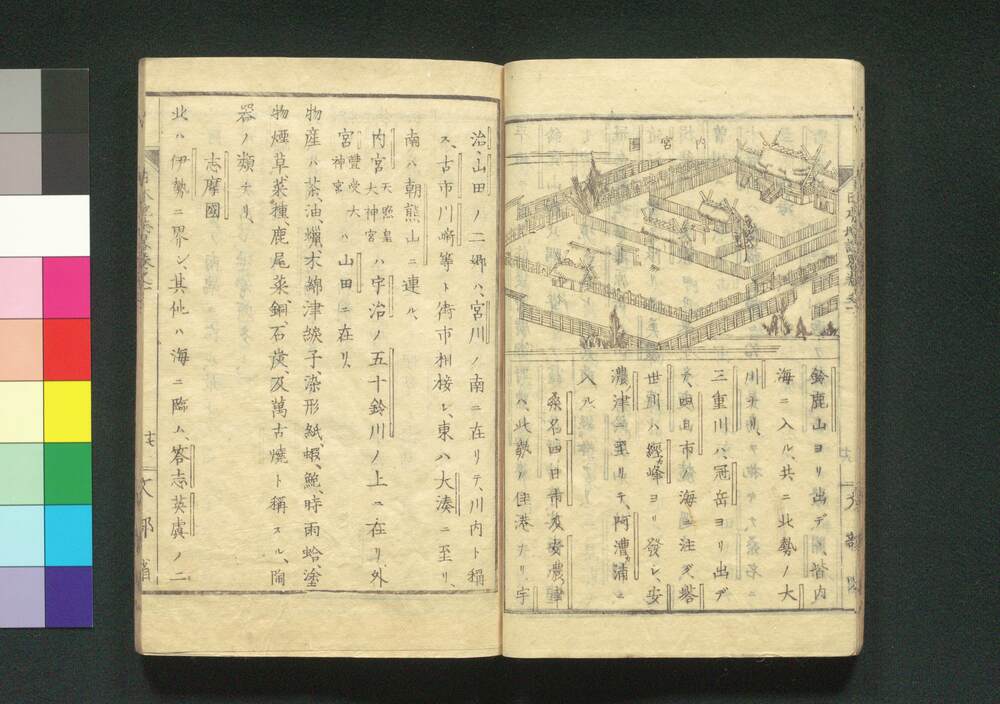 内宮圖
鈴鹿山ヨリ出デ、皆内
海ニ入ル、共ニ北勢ノ大
川ナリ、
三重川ハ、冠岳ヨリ出デ
テ、四日市ノ海ニ注グ、塔
世川ハ、經峰ヨリ發シ、安
濃津ニ至リテ、阿漕浦ニ
入ル、
桑名四日市及安濃津
ハ、此勢ノ佳港ナリ、宇
治、山田ノ二郷ハ、宮川ノ南ニ在リテ、川内ト稱
ス、古市川嵜等ト街市相接シ、東ハ大湊ニ至リ、
南ハ朝熊山ニ連ル、
内宮天照皇大神宮ハ宇治ノ五十鈴川ノ上ニ在リ、外
宮豐受大神宮ハ山田ニ在リ、
物産ハ茶、油、蠟、木綿、津綟子、染形紙、蝦、鮑、時雨蛤、塗
物、煙草、菜種、鹿尾菜、銅、石炭、及萬古燒ト稱スル、陶
器ノ類ナリ、
志摩國
北ハ伊勢ニ界シ、其他ハ海ニ臨ム、答志英虞ノ二
文部省